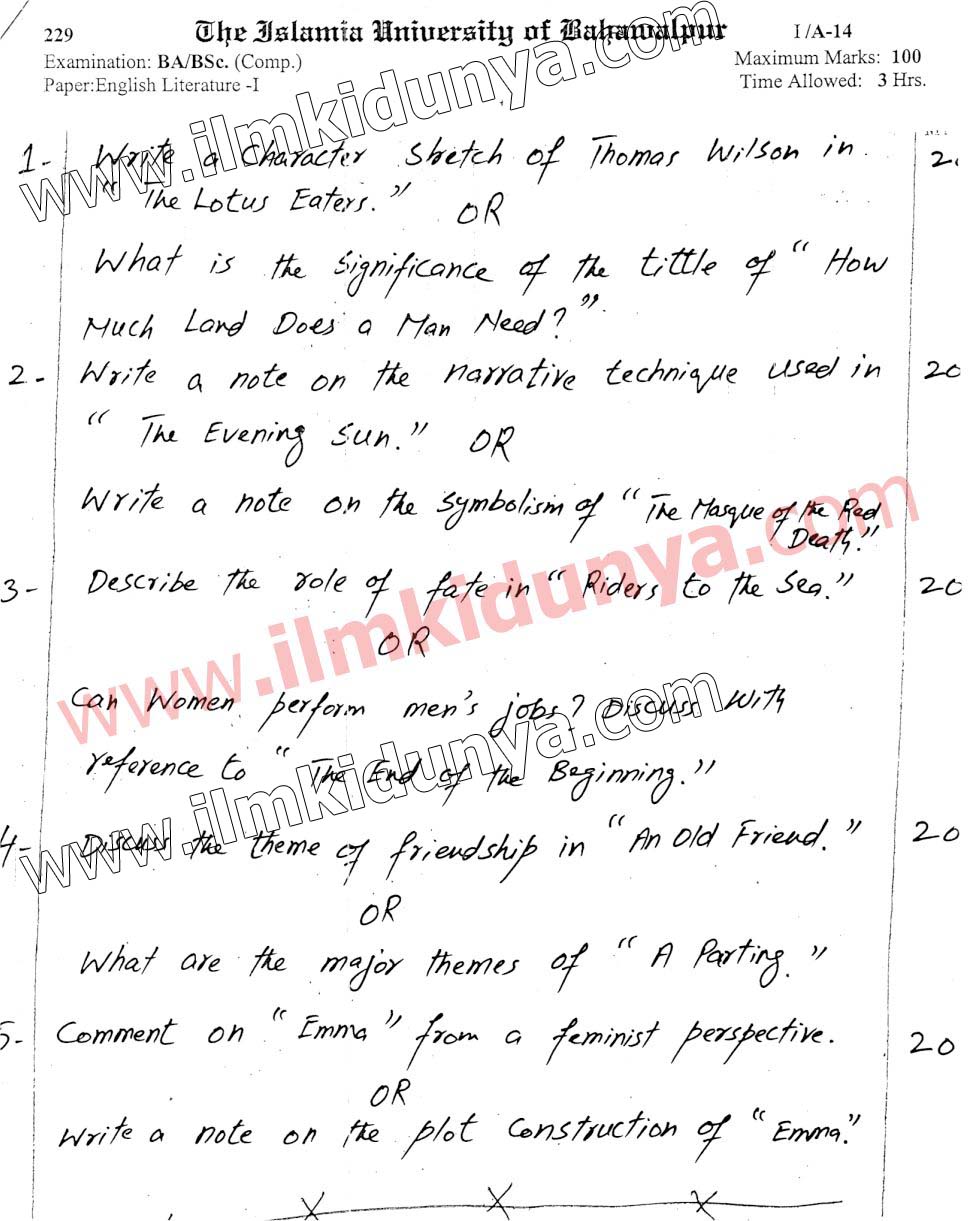 229 The Islamia University of Bahawalpur I/A-14
Examination: BA/BSc. (Comp.) Maximum Marks: 100
Paper:English Literature -I Time Allowed: 3 Hrs.
1- Write a Character Sketch of Thomas Wilson in 2.
"The Lotus Eaters."
OR
What is the significance of the tittle of "How
Much Land Does a Man Need?".
2- Write a note on the narrative technique used in 20
"The Evening Sun." OR
Write a note on the symbolism of "The Masque of the Red
Death."
3- Describe the role of fate in "Riders to the Sea." 20
OR
Can Women perform men's jobs? Discuss With
reference to "The End of the Beginning."
4- Discuss the theme of friendship in "An Old Friend." 20
OR
What are the major themes of "A Parting."
5- Comment on "Emma" from a feminist perspective. 20
OR
Write a note on the plot Construction of "Emma."
www.ilmkidunya.com
www.ilmkidunya.com
www.ilmkidunya.com